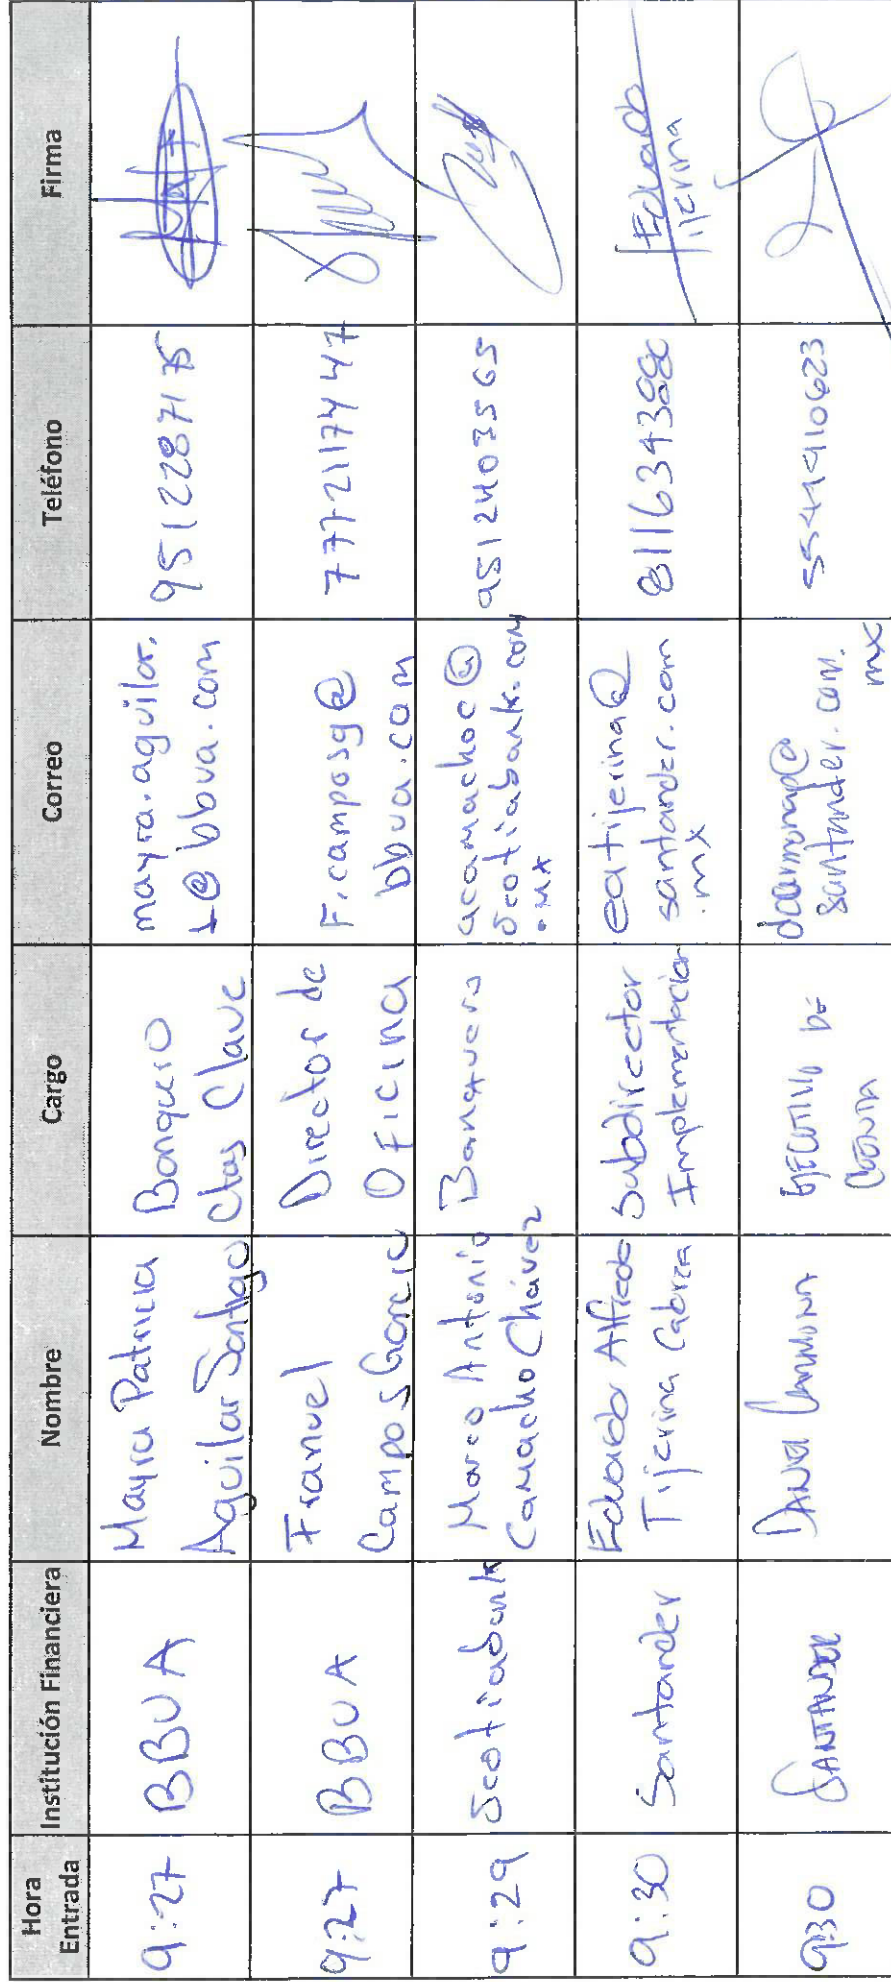 Hora Entrada
Institución Financiera
Nombre
Cargo
Correo
Teléfono
Firma
9:27
BBVA
Mayra Patricia
Aguilar Santiago
Banquero
Ctas Clave
mayra.aguilar.
1@bbva.com
9:27
BBVA
Franuel
Campos Garcia
Director de
Oficina
F.camposg@
bbva.com
7772117447
9:29
Scotiabank
Marco Antonio
Camacho Chávez
Banquero
acamachoc@
scotiabank.com
.mx
9512403565
9:30
Santander
Eduardo Alfredo
Tijerina Cabrea
Subdirector
Implementacion
eatijerina@
santander.com
.mx
Eduardo
Tijerina
9:30
SANTANDER
DANIEL CARMONA
EJECUTIVO DE
CUENTA
santander.com.
mx